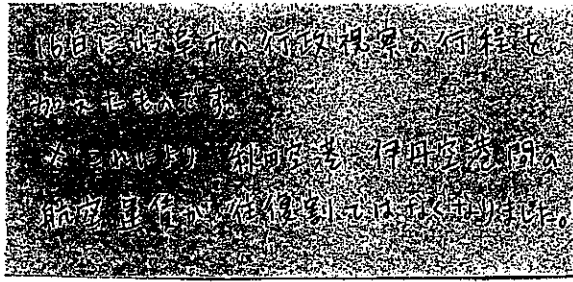 16日に岐阜市の行政視察の行程を
加えたものです。
※これにより 秋田空港、伊丹空港間の
航空運賃が往復割ではなくなりました。